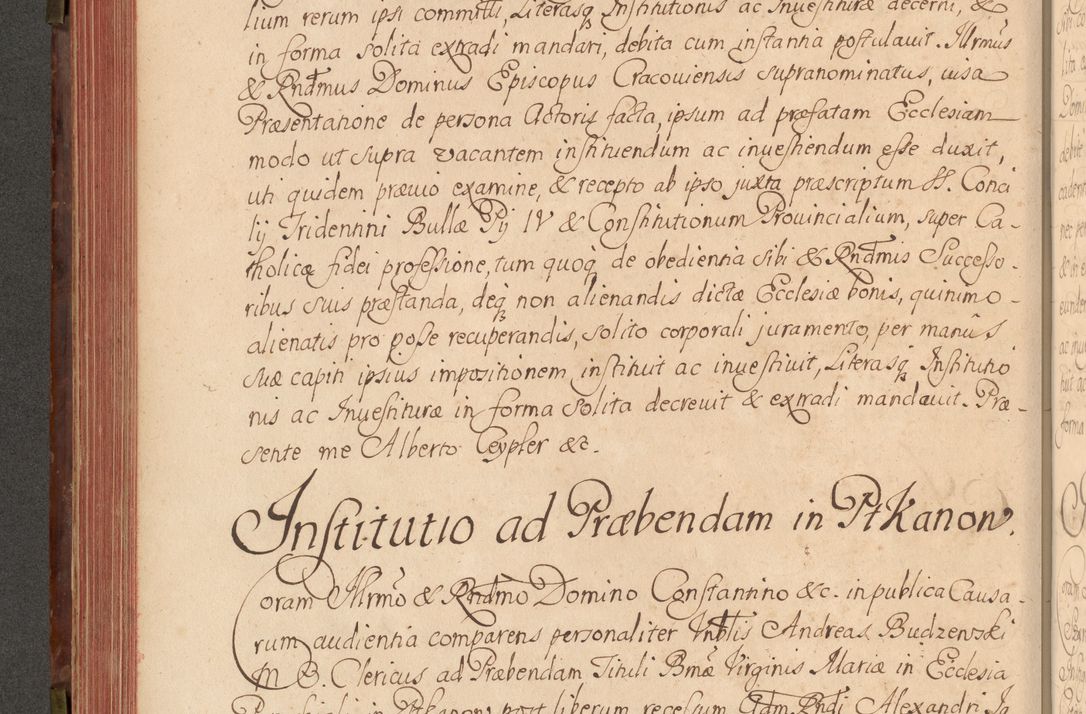 lium rerum ipsi committi, Literasq₃ Institutionis ac Inuestituræ decerni, &
in forma solita extradi mandari, debita cum instantia postulauit. Illrmus
& Rndmus Dominus Episcopus Cracouiensis supranominatus, uisa
Præsentatione de persona Actoris facta, ipsum ad præfatam Ecclesiam
modo ut supra vacantem instituendum ac inuestiendum esse duxit,
uti quidem præuio examine, & recepto ab ipso juxta præscriptum SS. Conci
lij Tridentini Bullæ Pij IV & Constitutionum Prouincialium, super Ca-
tholicæ fidei professione, tum quoq₃ de obedientia sibi & Rndmis Successo-
ribus suis præstanda, deq₃ non alienandis dictæ Ecclesiæ bonis, quinimo-
alienatis pro posse recuperandis, solito corporali juramento, per manûs
suæ capiti ipsius impositionem instituit ac inuestiuit, Literasq₃ Institutio
nis ac Inuestituræ in forma solita decreuit & extradi mandauit. Præ-
sente me Alberto Ceypler &c.
Institutio ad Præbendam in Ptkanow.
Coram Illrmo & Rndmo Domino Constantino &c. in publica Causa-
rum audientia comparens personaliter Inblis Andreas Budzenski
M B. Clericus ad Præbendam Tituli Bmæ Virginis Mariæ in Ecclesia
liberum recessum Adm Rndi Alexandri Ja